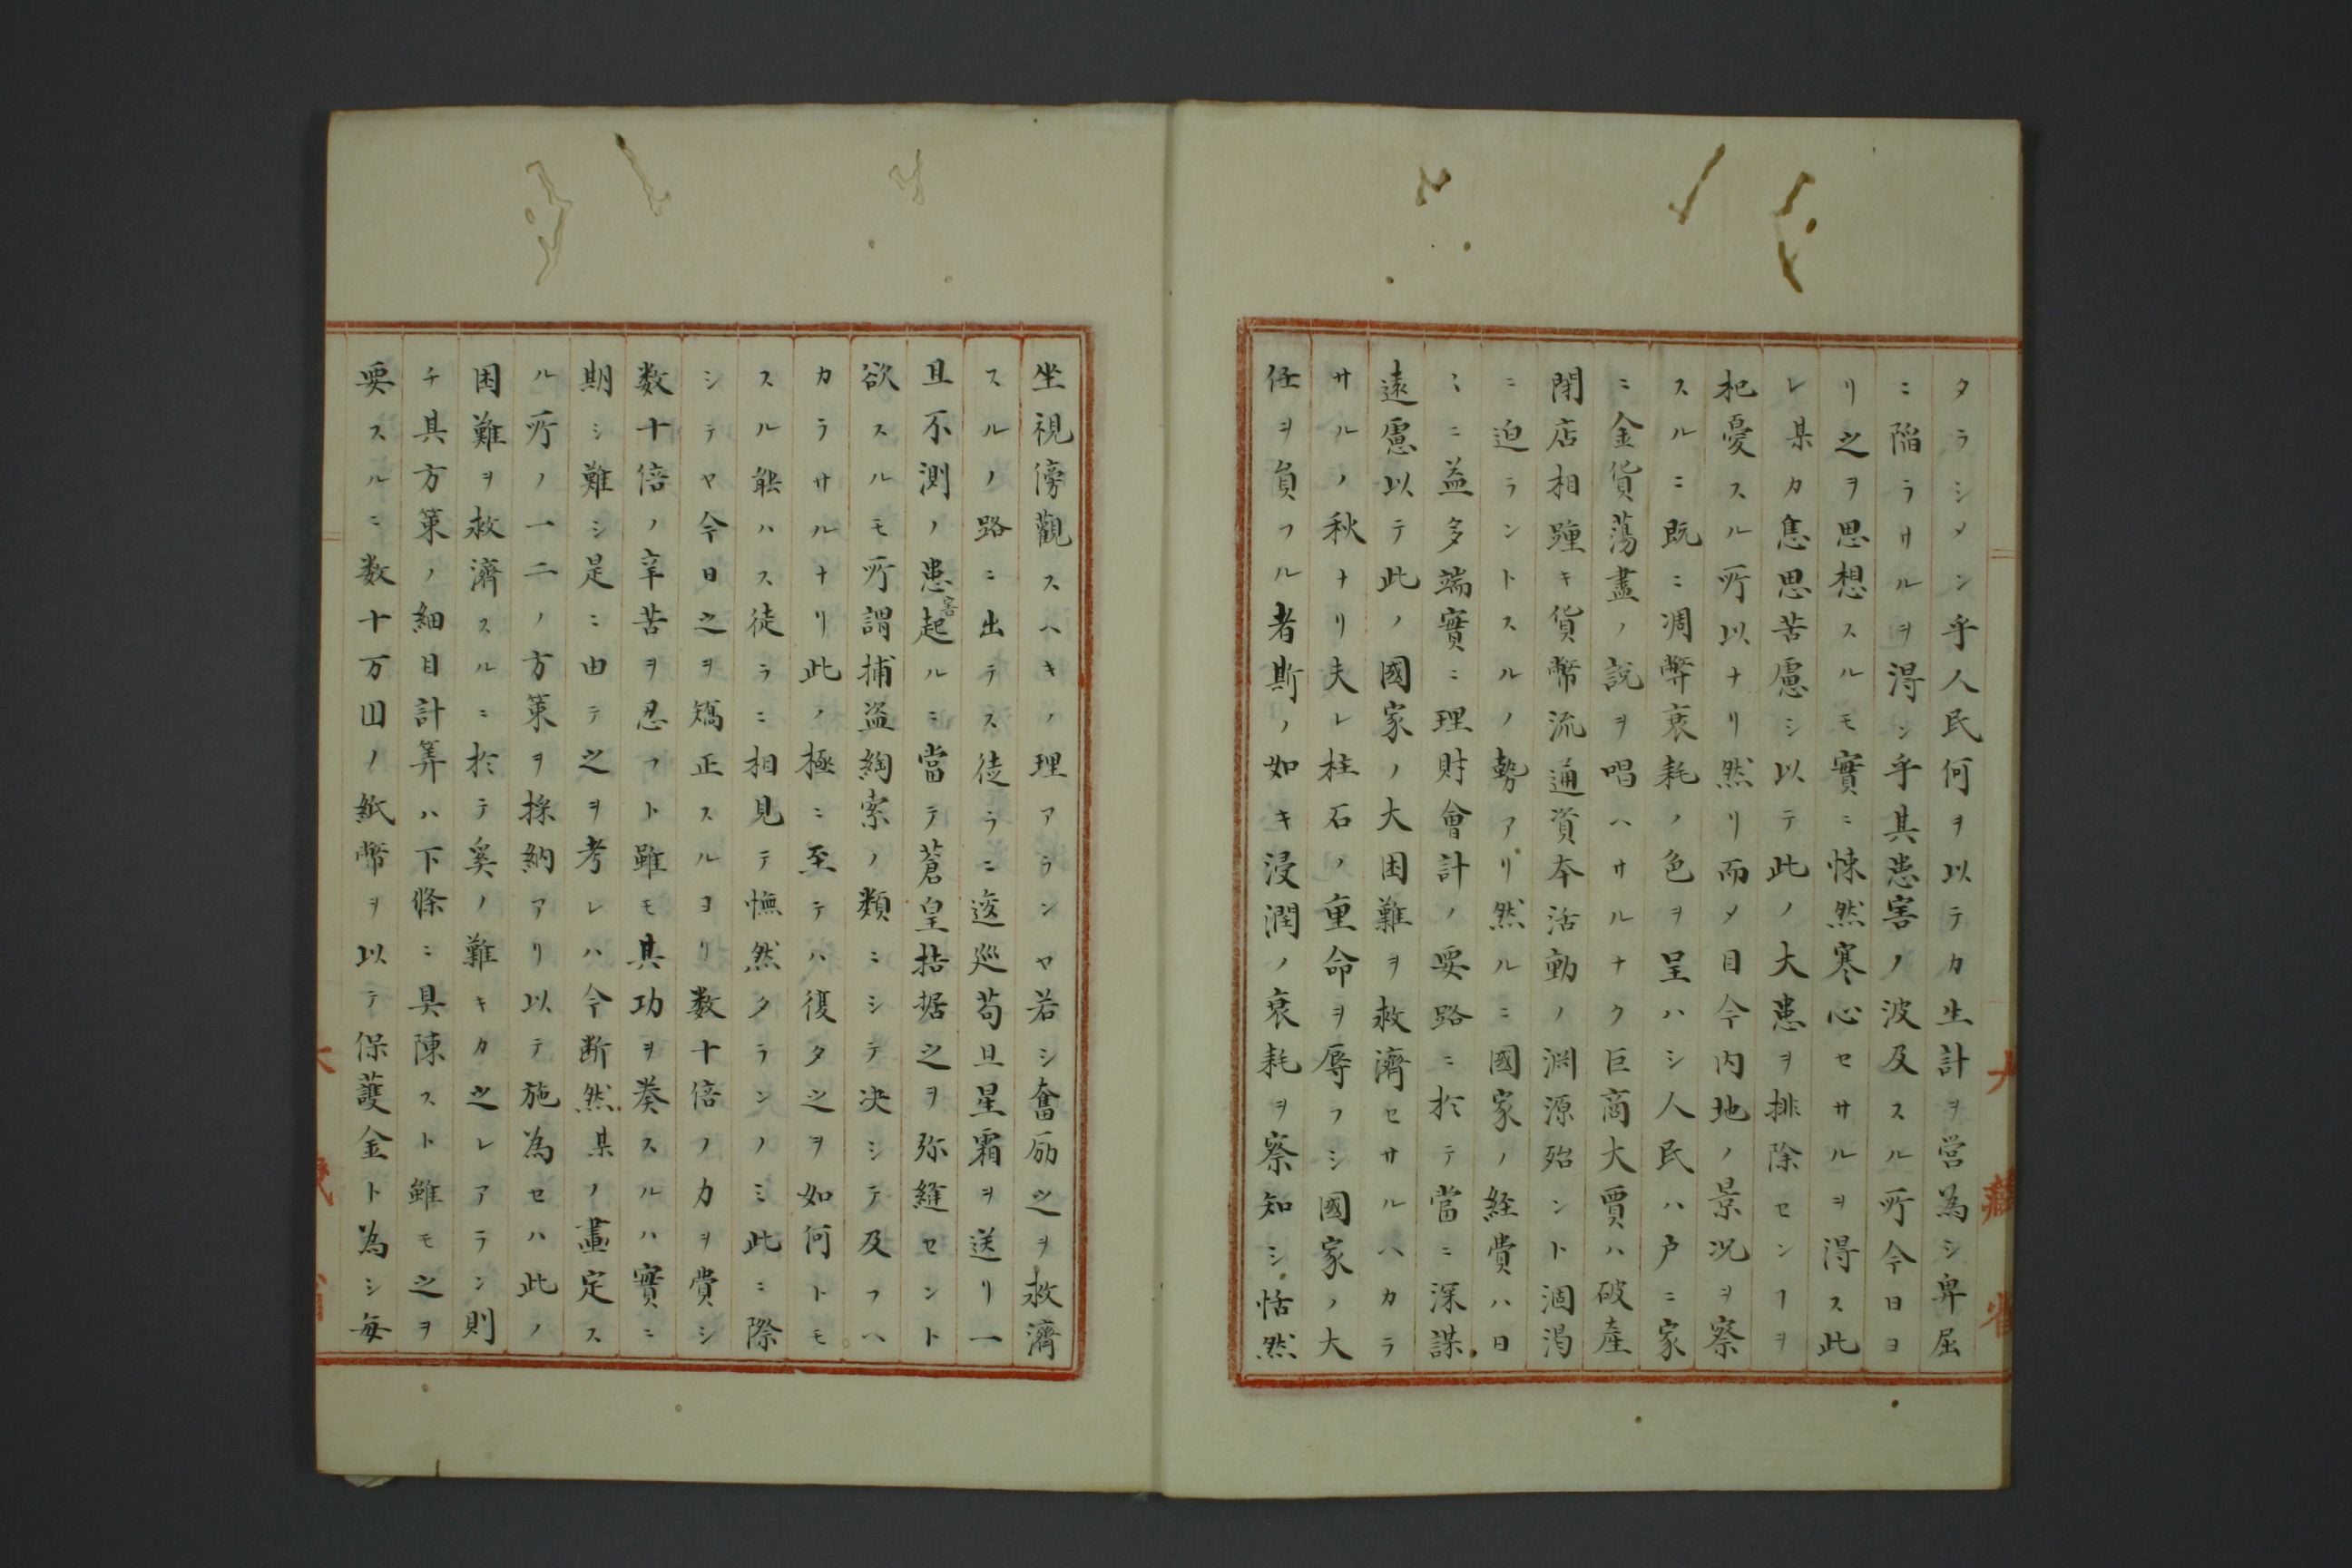 タラシメン乎人民何ヲ以テカ生計ヲ営為シ卑屈
ニ陥ラサルヲ得ン乎其患害ノ波及スル所今日ヨ
リ之ヲ思想スルモ實ニ悚然寒心セサルヲ得ス此
レ某カ焦思苦慮シ以テ此ノ大患ヲ排除センヿヲ
杞憂スル所以ナリ然リ而メ目今内地ノ景况ヲ察
スルニ既ニ凋弊衰耗ノ色ヲ呈ハシ人民ハ戸ニ家
ニ金貨蕩盡ノ說ヲ唱ヘサルナク巨商大賈ハ破産
閉店相踵キ貨幣流通資本活動ノ渊源殆ント涸渇
ニ迫ラントスルノ勢アリ然ルニ國家ノ経費ハ日
ミニ益多端實ニ理財會計ノ要路ニ於テ當ニ深謀
遠慮以テ此ノ國家ノ大困難ヲ救濟セサルヘカラ
サルノ秋ナリ夫レ柱石ノ重命ヲ辱フシ國家ノ大
任ヲ負フル者斯ノ如キ浸潤ノ衰耗ヲ察知シ恬然
坐視傍觀スヘキノ理アランヤ若シ奮励之ヲ救濟
スルノ路ニ出テス徒ラニ逡巡苟且星霜ヲ送リ一
且不測ノ患害起ルニ當テ蒼皇拮据之ヲ弥縫セント
欲スルモ所謂捕盗綯索ノ類ニシテ决シテ及フヘ
カラサルナリ此ノ極ニ至テハ復タ之ヲ如何トモ
スル能ハス徒ラニ相見テ憮然タランノミ此ニ際
シテヤ今日之ヲ矯正スルヨリ数十倍ノカヲ費シ
数十倍ノ辛苦ヲ忍フト雖モ其功ヲ奏スルハ實ニ
期シ難シ是ニ由テ之ヲ考レハ今断然某ノ畫定ス
ル所ノ一二ノ方策ヲ採納アリ以テ施為セハ此ノ
困難ヲ救濟スルニ於テ奚ノ難キカ之レアラン則
チ其方策ノ細目計筭ハ下條ニ具陳スト雖モ之ヲ
要スルニ数十万囙ノ紙幣ヲ以テ保護金ト為シ毎
大藏省